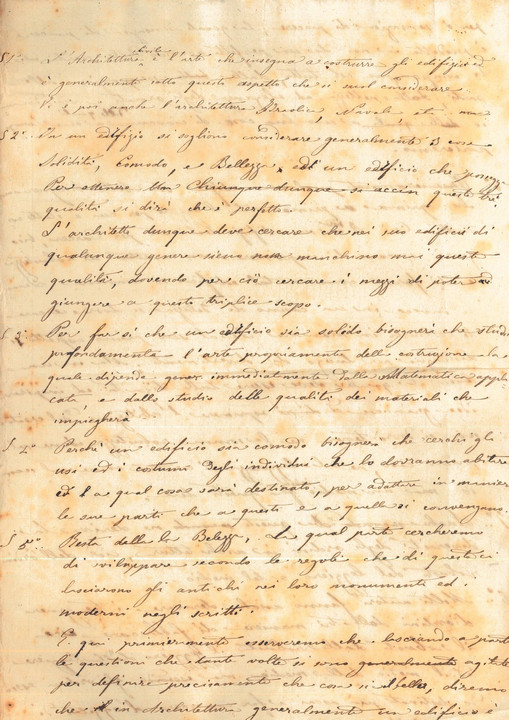 § 1º L'Architettura civile è l'arte che insegna a costrurre gli edifizi ed
è generalmente sotto questo aspetto che si suol considerare
Vi è poi anche l'architettura Idraulica, Navale, etc
§ 2º In un Edifizio si sogliono considerare generalmente 3 cose
Solidità, Comodo, e Bellezza, ed un edificio che possegga
Per ottenere Un Chiunque dunque si accin questi tre
qualità si dirà che è perfetto.
L'architetto dunque deve cercare che nei suo edifici di
qualunque genere siano non manchino mai queste
qualità, dovendo per ciò cercare i mezzi di poter
giungere a questo triplice scopo.
§ 3º Per far sì che un edificio sia solido bisognerà che studi
profondamente l'arte propriamente dell costruzione la
quale dipende gener immediatamente dalla Matematica appli
cata, e dallo studio delle qualità dei materiali che
impiegherà
§ 4º Perchè un edificio sia comodo bisognerà che cerchi gli
usi ed i costumi degli individui che lo dovranno abitare
ed a qual cosa sarà destinato, per adattare in maniera
le sue parti che a questo e a quelli si convengono.
§ 5º Resta della la Belezza, La qual parte cercheremo
di sviluppare secondo le regole che di questa ci
lasciarono gli antichi nei loro monumenti ed i
moderni negli scritti.
E qui primieramente osserveremo che lasciando a parte
le questioni che tante volte si sono generalmente agitate
per definire precisamente che cosa si il bello, diremo
che il in Architettura generalmente un edificio è